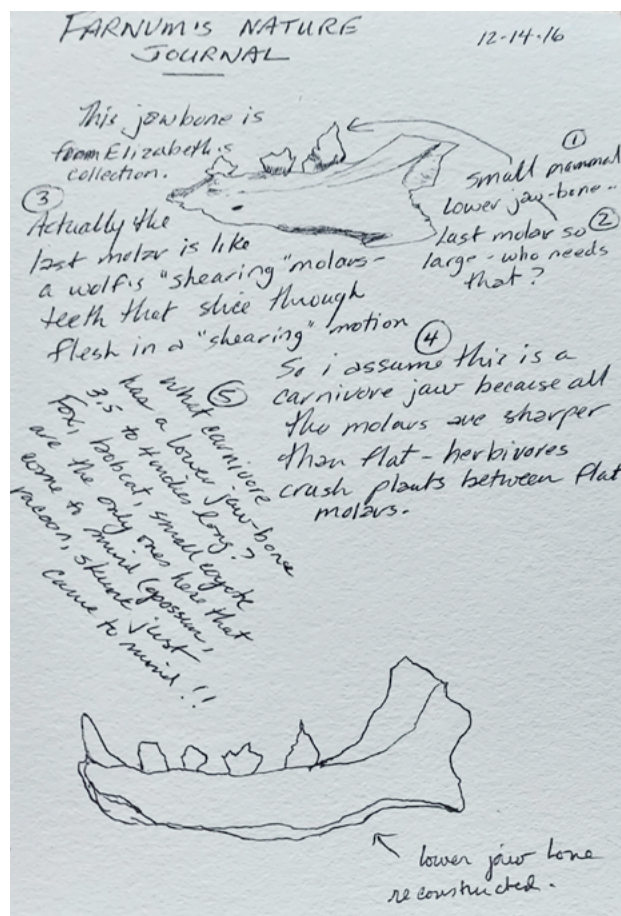 FARNUM'S NATURE
JOURNAL
12-14-16
This jawbone is
from Elizabeth's
collection.
①
small mammal
lower jaw-bone--
②
Last molar so
large - who needs
that?
③
Actually the
last molar is like
a wolf's "shearing" molars-
teeth that slice through
flesh in a "shearing" motion
④
So i assume this is a
carnivore jaw because all
the molars are sharper
than flat - herbivores
crush plants between flat
molars.
⑤
What carnivore
has a lower jaw-bone
3.5 to 4 inches long?
Fox, bobcat, small coyote
are the only ones here that
come to mind (opossum,
racoon, skunk just
came to mind!!
lower jaw bone
reconstructed.